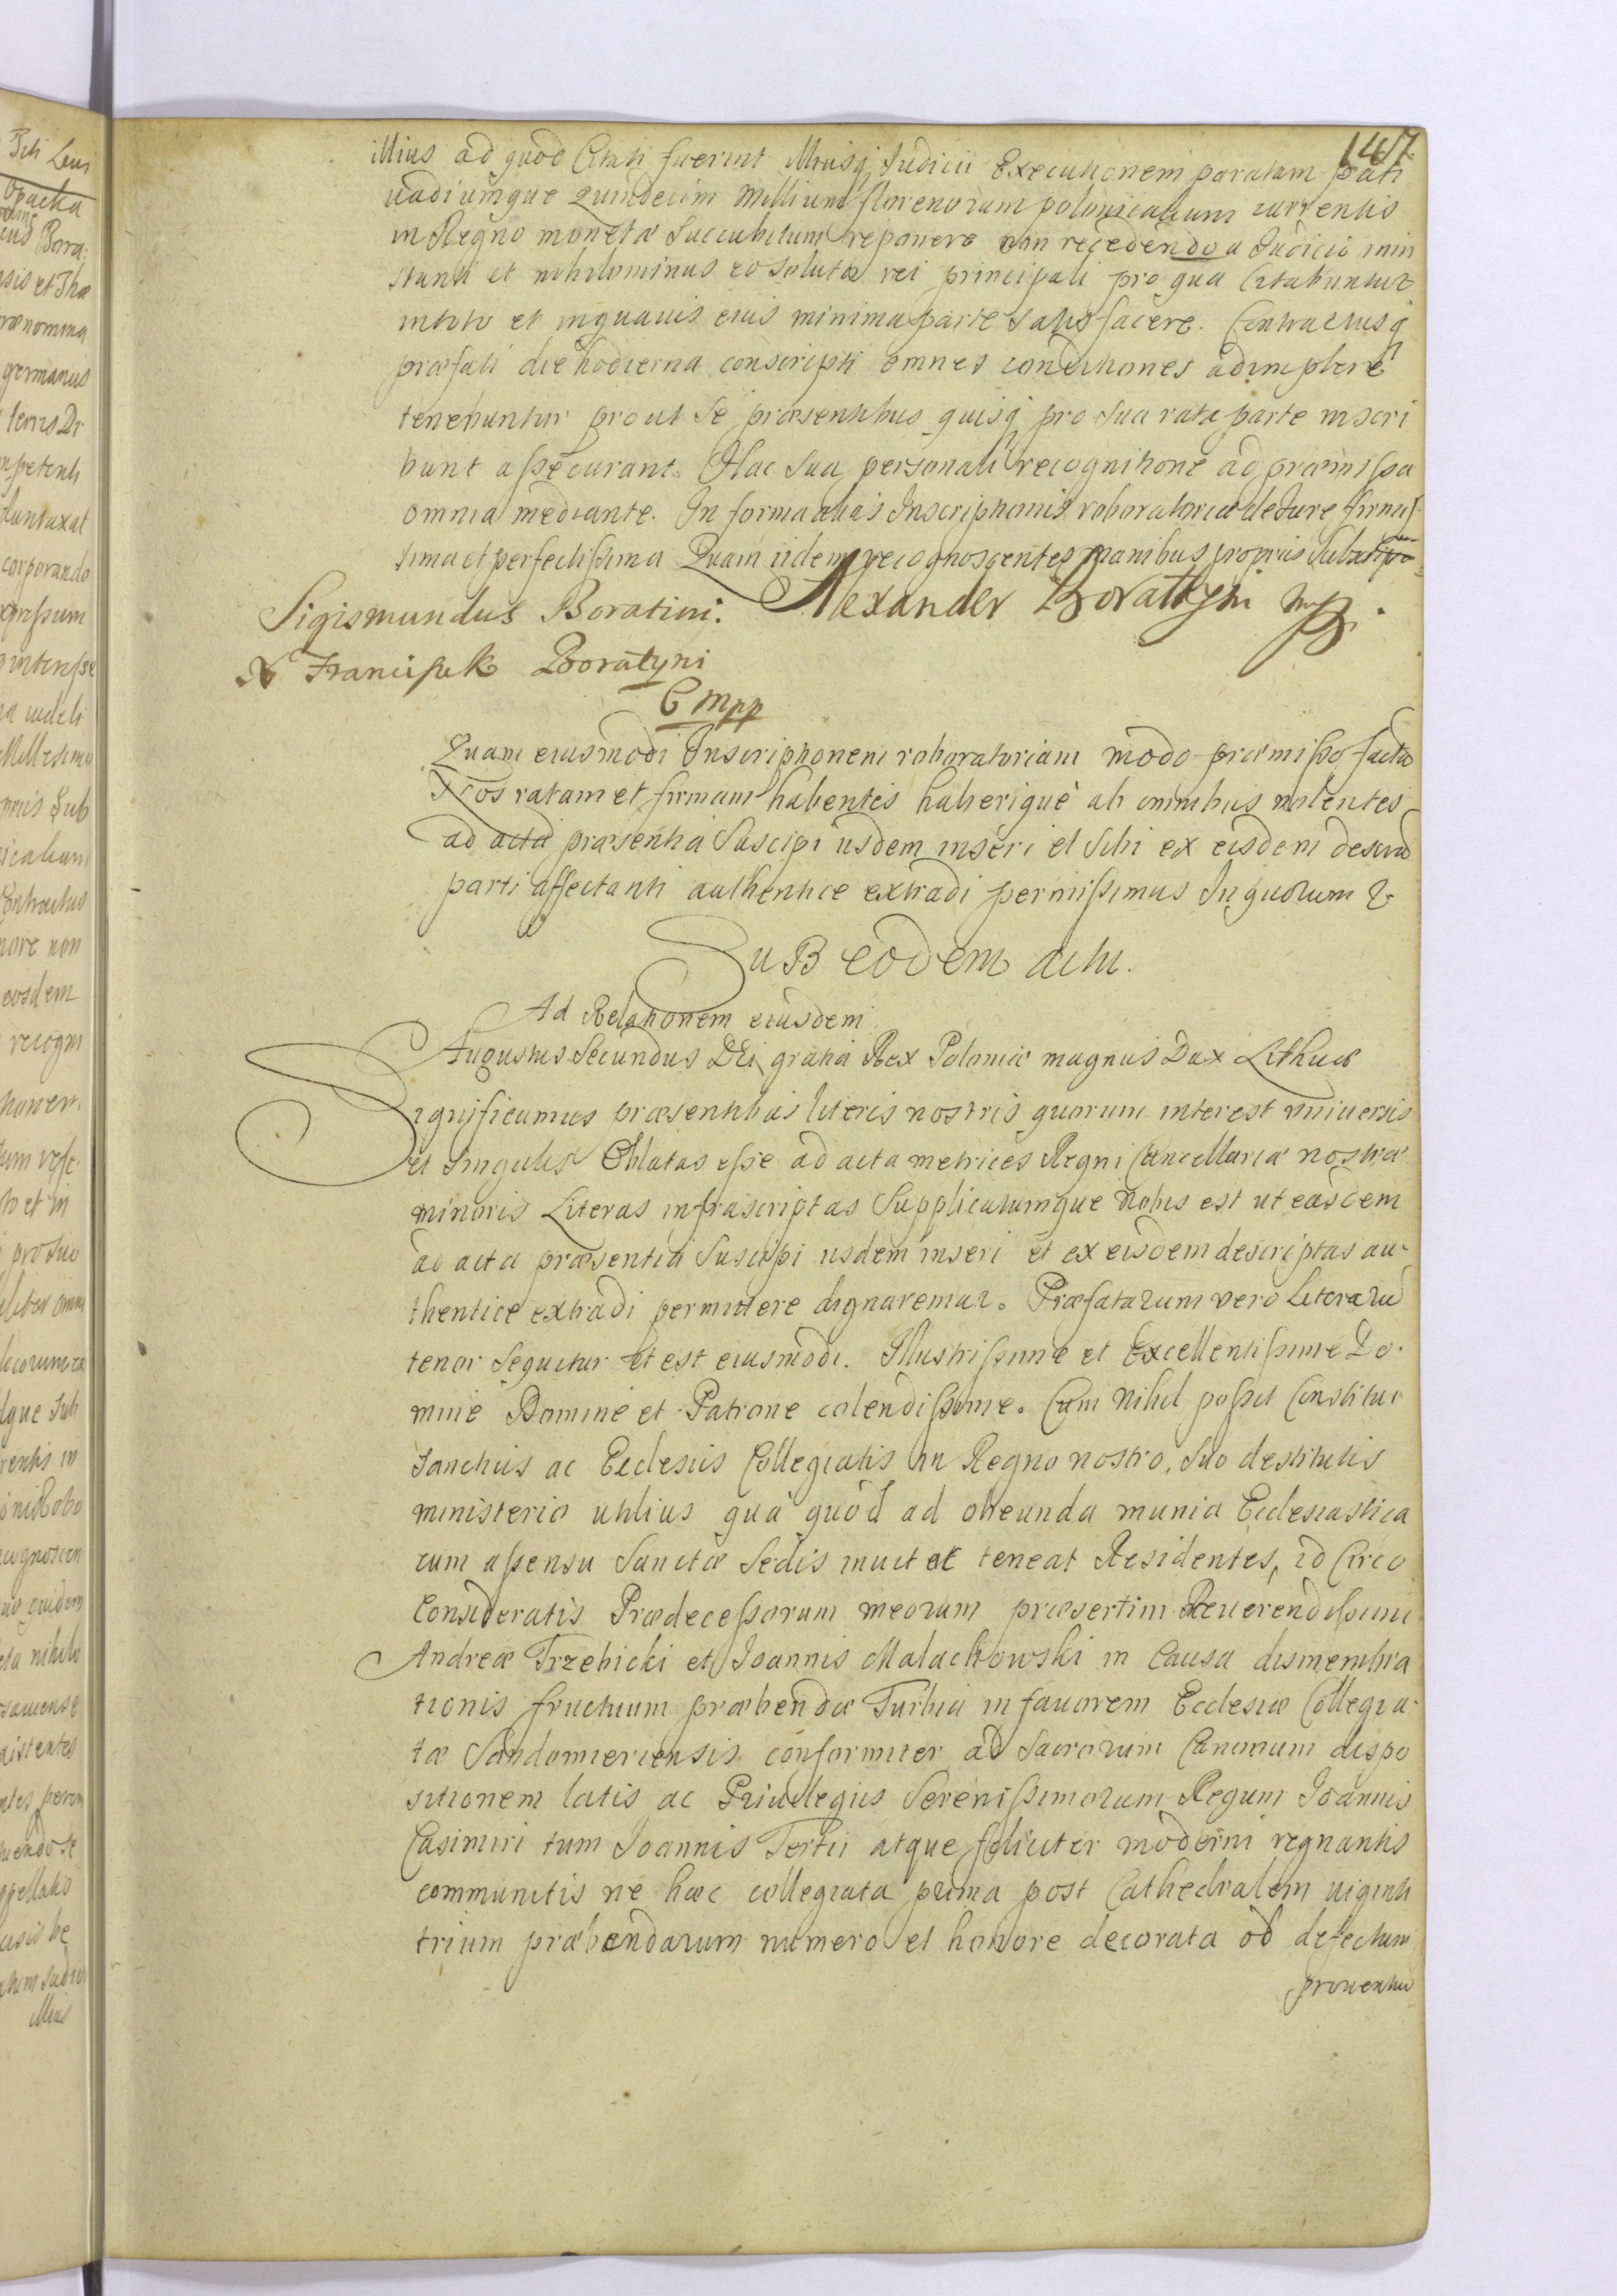 147
illius ad quod Citati fuerint illiusq Judicii Executionem paratam pati
vadiumque Quindecim Millium florenorum polonicalium currentis
in Regno monetæ Succubitum reponere non recedendo a Judicio min
stanti et nihilominus eo soluto rei principali pro qua Citabuntur
intoto et inquavis eius minima parte satisfacere. Contractusq
præfati die hodierna conscripti omnes conditiones adimplere
tenebuntur prout se præsentibus quisq pro sua rata parte inscri
bunt assecurant. Hac sua personali recognitione ad præmissa
omnia mediante. In forma alias Inscriptionis roboratoriæ de Jure firmis
sima et perfectissima Quam iidem recognoscentes manibus propriis
Sigismundus Boratini. Alexander Borattyni mpp.
X Franciszek Boratyni
C mpp
Quam eiusmodi Inscriptionem roboratoriam modo præmisso facta
Nos ratam et firmam habentes haberique ab omnibus volentes
ad acta præsentia Suscipi iisdem inseri et Sibi ex eisdem descrid
parti affectanti authentice extradi permissimus In quorum &
SuB eodem actu.
Ad Relationem eiusdem
Augustus Secundus DEi gratia Rex Poloniæ magnus Dux Lithuæ
Significamus præsentibus literis nostris quorum interest universis
et singulis Oblatas esse ad acta metrices Regni Cancellariæ nostræ
minoris Literas infrascriptas Supplicatumque Nobis est ut easdem
ad acta præsentia Suscipi iisdem inseri et ex eisdem descriptas au-
thentice extradi permittere dignaremur. Præfatarum vero Literarū
tenor sequitur et est eiusmodi. Illustrissime et Excellentissime Do-
mine Domine et Patrone colendissime. Cum nihil possit Constitui
sanctius ac Ecclesiis Collegiatis in Regno nostro, suo destitutis
ministerio utilius quā quod ad obeunda munia Ecclesiastica
cum assensu Sanctæ Sedis invitet teneat Residentes, id Circo
Consideratis Prædecessorum meorum præsertim Reverendissimi
Andreæ Trzebicki et Joannis Malachowski in Causa dismembra
tionis fructuum præbendæ Turbia in favorem Ecclesiæ Collegia-
tæ Sandomiriensis conformiter ad Sacrorum Canonum dispo
sitionem latis ac Privilegiis Serenissimorum Regum Joannis
Casimiri tum Joannis Tertii atque feliciter moderni regnantis
communitis ne hæc collegiata prima post Cathedralem viginti
trium præbendarum numero et honore decorata ob defectum
proventuu